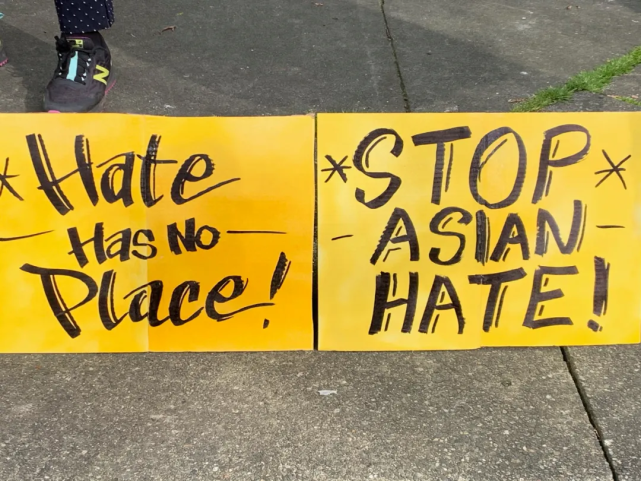 *Hate
Has No
Place!
*STOP*
-ASIAN-
HATE!
N